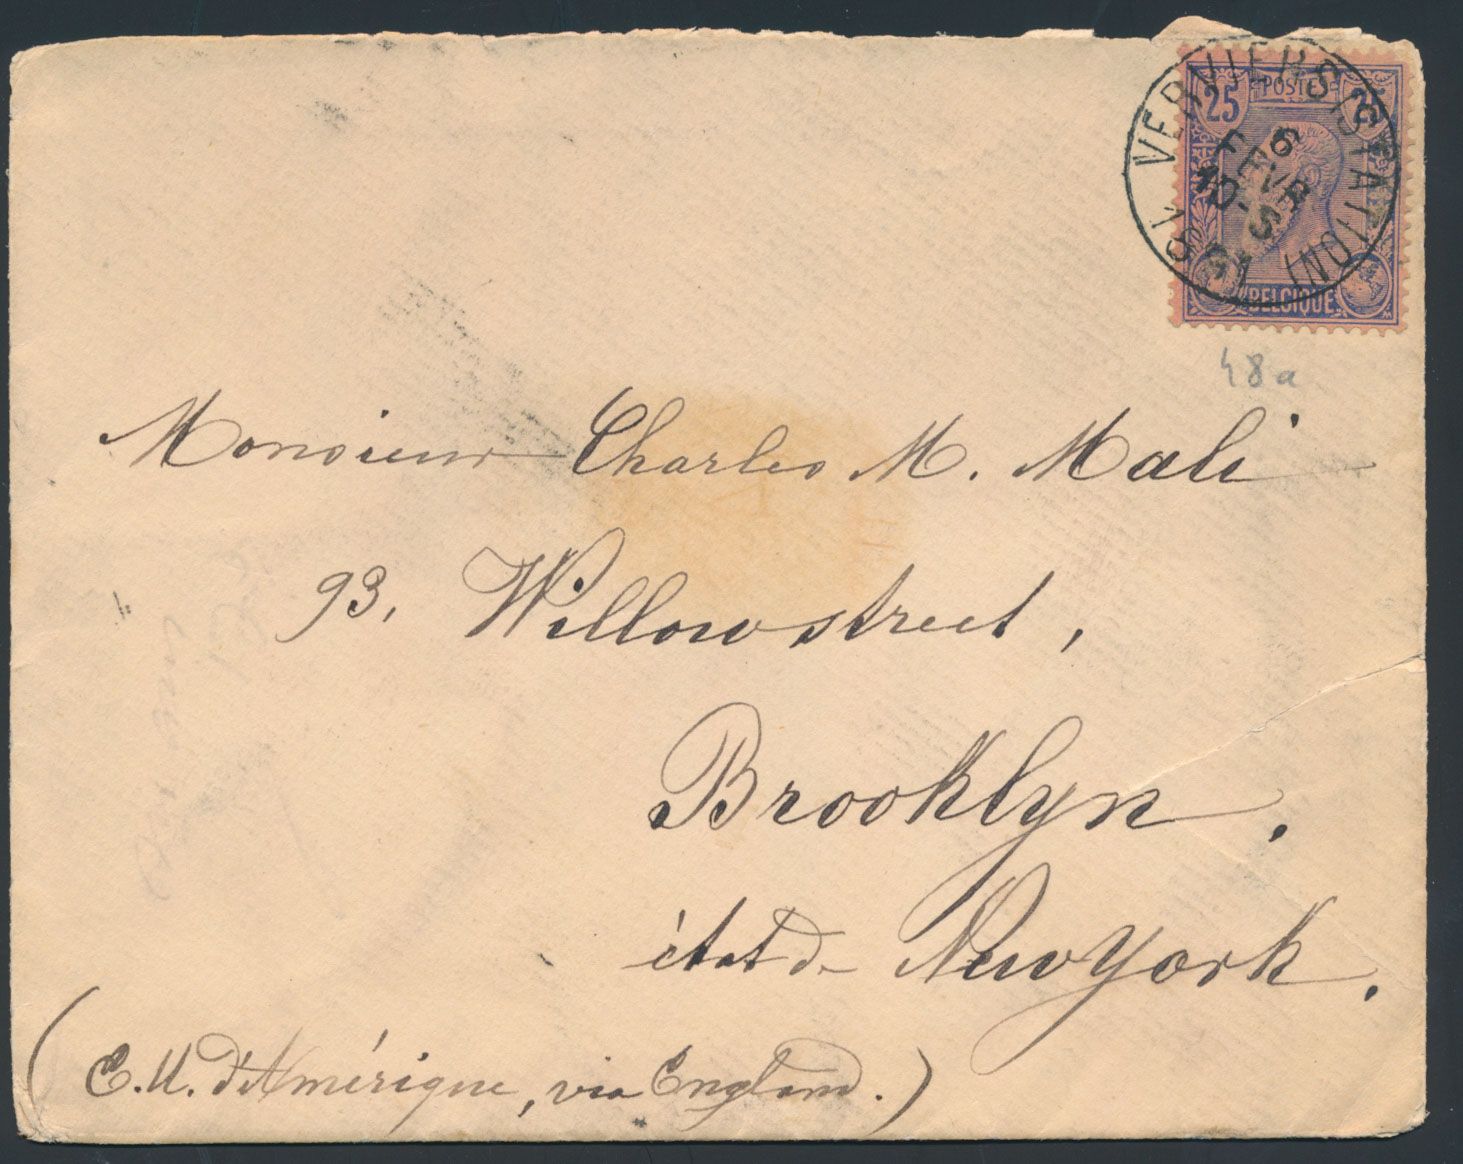 25 POSTES 25
VERVIERS (STATION)
6
FEVR
10-S
1891
BELGIQUE
48a
Monsieur Charles M. Mali
93, Willowstreet,
Brooklyn.
état de New York.
(E. U. d'Amérique, via England.)